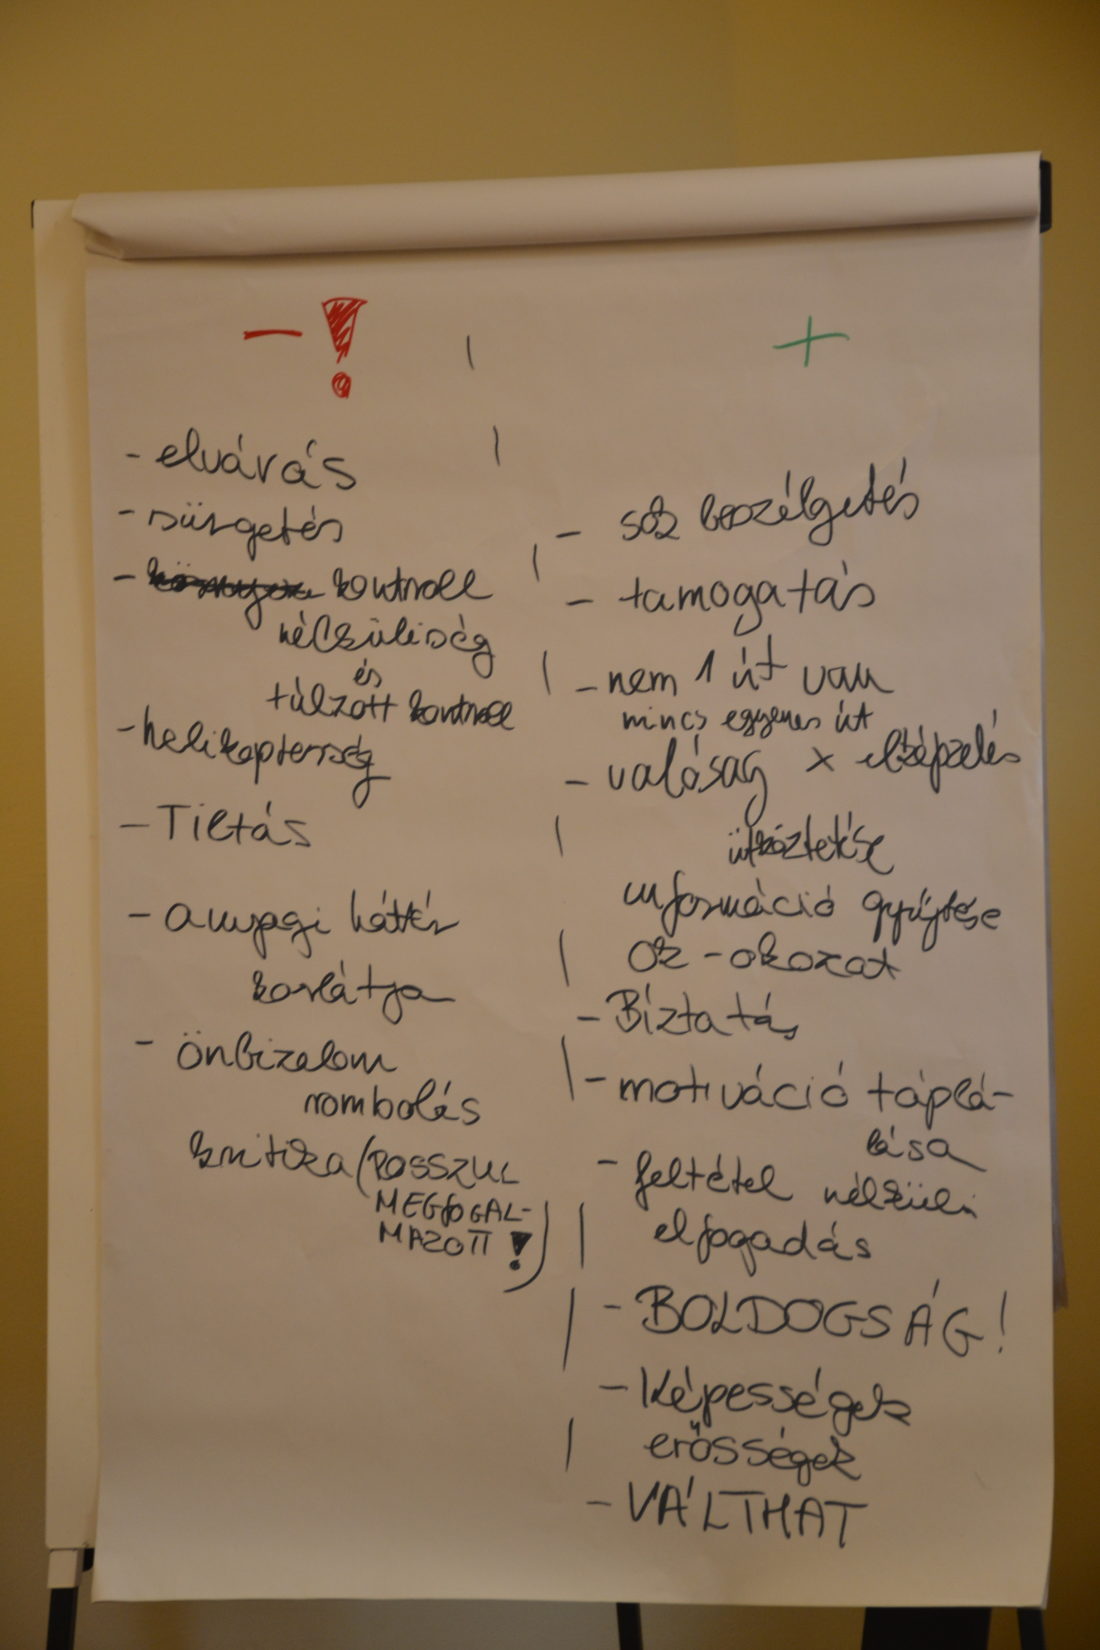 − !
- elvárás
- sürgetés
- kontroll
nélküliség
és
túlzott kontroll
- helikopterség
- Tiltás
- anyagi háttér
korlátja
- önbizalom
rombolás
kritika (ROSSZUL
MEGFOGAL-
MAZOTT !)
+
- sok beszélgetés
- tamogatás
- nem 1 út van
nincs egyenes út
- valóság x elképzelés
ütköztetése
információ gyűjtése
ok - okozat
- Bíztatás
- motiváció táplá-
lása
- feltétel nélküli
elfogadás
- BOLDOGSÁG!
- Képességek
erősségek
- VÁLTHAT